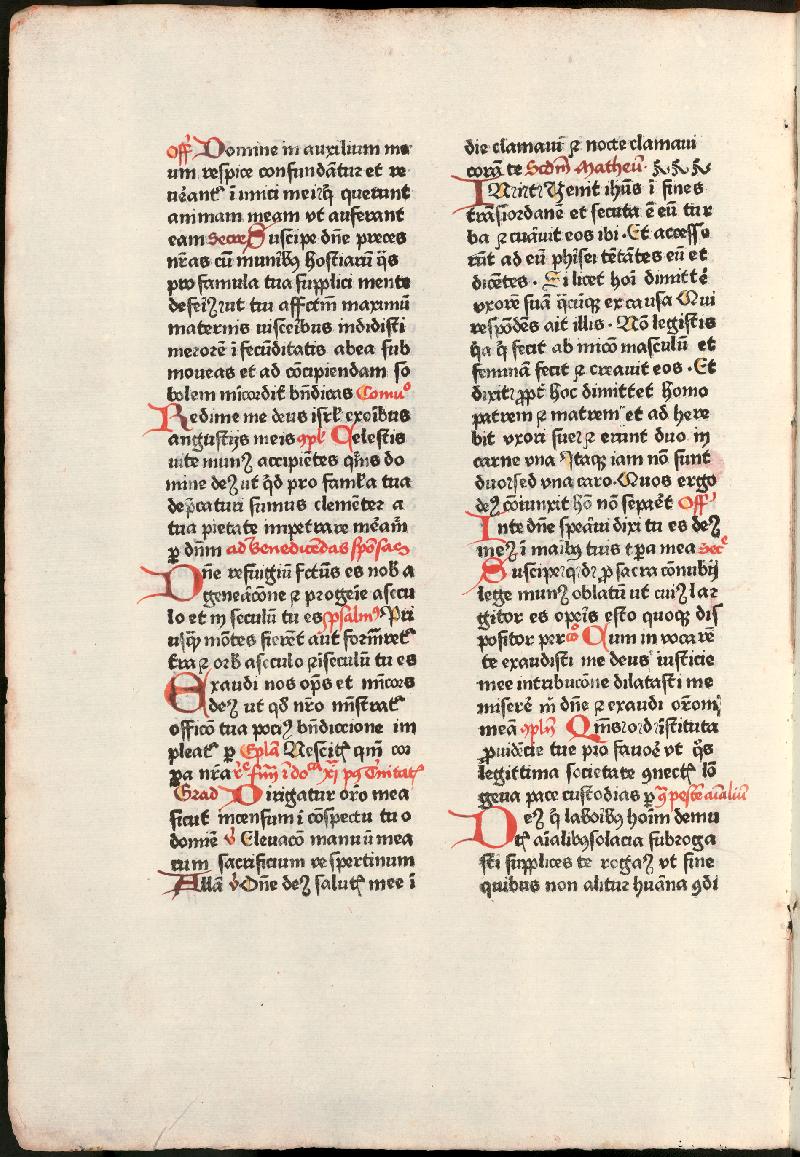 Off̄ Domine in auxilium me
um respice confundātur et re
uerant᷑ i imici mei q̄ querunt
animam meam vt auferant
eam Secre Suscipe dn̄e preces
nr̄as cū munibꝫ hostiarū q̄s
pro famula tua supplici mente
defeiꝫ ut tui affctm̄ maximū
maternis uisceibus indidisti
merorē i fecūditatis abea sub
moueas et ad cōcipiendam so
bolem mīcordit᷑ bn̄dicas Comuº
Redime me deus isrl̄ exoībus
angustijs meis ꝯpl̄ Celestis
uite munꝫ accipiētes qm̄s do
mine deꝫ ut qd̄ pro famľa tua
dep̄catur sumus clemēter a
tua pietate impetrare meām̄
ꝑ dn̄m ad benedicēdas spōsas
Dn̄e refugiū fc̄tus es nob̄ a
geneācōne ꝛ progeīe asecu
lo et in seculū tu es psalmꝰ Pri
usq̄ mōtes fierēt aut formret᷑
tr̄a ꝛ orb̄ a seculo ꝛ iseculū tu es
Exaudi nos op̄s et mīcors
deꝫ ut qd̄ nr̄o mīstrat᷑
officō tua pociꝰ bn̄diccione im
pleat᷑ ꝑ Epl̄a Nescit᷑ qm̄ cor
pa nr̄a
Grad Dirigatur orō mea
sicut incensum i cōspectu tuo
domīe ꝟ Eleuacō manuū mea
rum sacrificium vespertinum
Allā ꝟ Dn̄e deꝫ salut᷑ mee i
die clamaui ꝛ nocte clamaui
corā te Scdm̄ Matheū
In illo tp̄r Uenit ihūs i fines
trāsiordanē et secuta ē eū tur
ba ꝛ cuāuit eos ibi · Et accesse
rūt ad eū phīsei tētātes eū et
dicētes · Si licet hoī dimittē
vxorē suā q̄cūqꝫ ex causa Qui
respōdēs ait illis · Nō legistis
q̄a q̄ fecit ab inicō masculū et
feminā fecit ꝛ creauit eos · Et
dixit ꝓpt᷑ hoc dimittet homo
patrem ꝛ matrem et ad here
bit vxori sue ꝛ erunt duo in
carne vna Itaqꝫ iam nō sunt
duo sed vna caro · Quos ergo
deꝫ cōiunxit hō nō sepaēt Off̄
In te dn̄e speāui dixi tu es deꝫ
meꝫ i maībꝫ tuis tꝑa mea Secᵉ
Suscipe q̄ dn̄ ꝓ sacra cōnubij
lege munꝫ oblatū ut cuiꝫ lar
gitor es opeīs esto quoqꝫ dis
positor per Cō Cum in vocarē
te exaudisti me deus iusticie
mee intribucōne dilatasti me
miserē m̄ dn̄e ꝛ exaudi orōm̄
meā ꝯpl̄ Qm̄s o d īstituta
ꝓuidēcie tue pio fauoē vt q̄s
legittima societate ꝯnect᷑ lō
geua pace custodias ꝑ ꝯ pestē aīaliū
Deꝫ q̄ laboibꝫ hoīm demu
tꝭ aīalibꝫ solacia subroga
sti supplices te rogaꝫ vt sine
quibus non alitur huāna ꝯdi